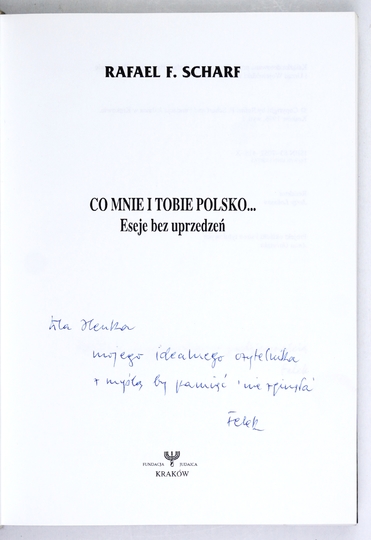 RAFAEL F. SCHARF
CO MNIE I TOBIE POLSKO...
Eseje bez uprzedzeń
Dla Henka
mojego idealnego czytelnika
z myślą by pamięć nie zginęła
Felek
FUNDACJA JUDAICA
KRAKÓW